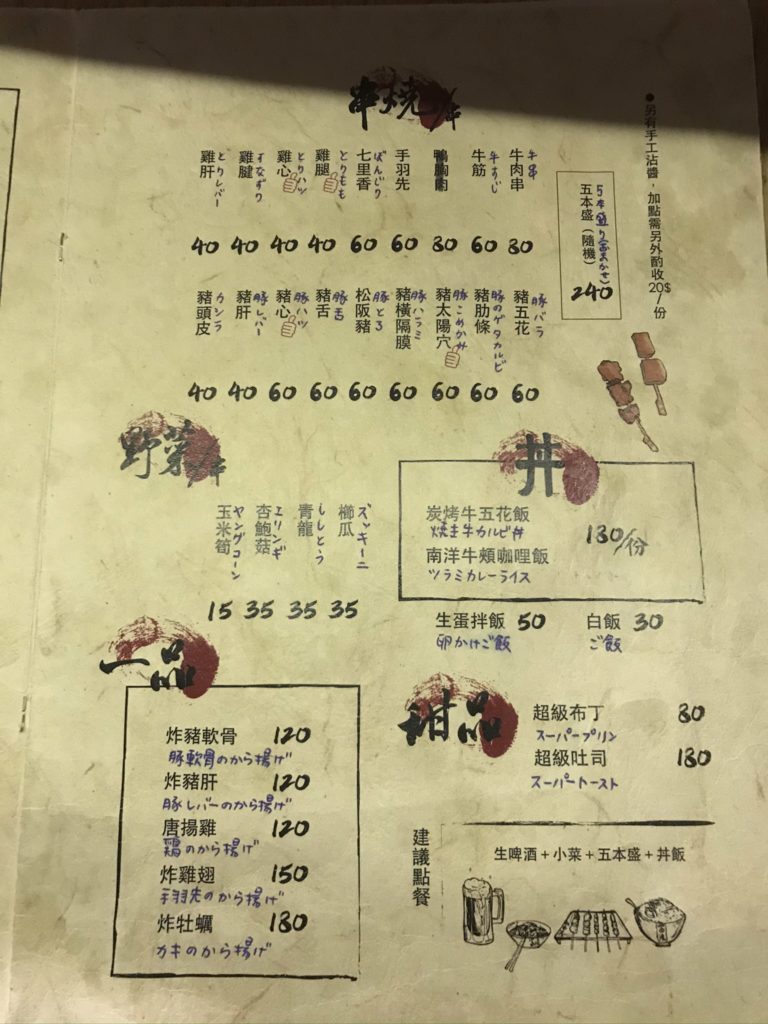 串燒/串
●另有手工沾醬，加點需另外酌收20$/份
五本盛（隨機）
5本盛り(おまかせ)
240
牛肉串
牛串
80
牛筋
牛すじ
60
鴨胸肉
80
手羽先
60
七里香
ぼんじり
60
雞腿
とりもも
40
雞心
とりハツ
40
雞腱
すなずり
40
雞肝
とりレバー
40
豬五花
豚バラ
60
豬肋條
豚のゲタカルビ
60
豬太陽穴
豚こめかみ
60
豬橫隔膜
豚ハラミ
60
松阪豬
豚とろ
60
豬舌
豚舌
60
豬心
豚ハツ
60
豬肝
豚レバー
40
豬頭皮
カシラ
40
野菜/串
櫛瓜
ズッキーニ
35
青龍
ししとう
35
杏鮑菇
エリンギ
35
玉米筍
ヤングコーン
15
丼
炭烤牛五花飯
焼き牛カルビ丼
南洋牛頰咖哩飯
ツラミカレーライス
180/份
生蛋拌飯 50
卵かけご飯
白飯 30
ご飯
一品
炸豬軟骨 120
豚軟骨のから揚げ
炸豬肝 120
豚レバーのから揚げ
唐揚雞 120
鶏のから揚げ
炸雞翅 150
手羽先のから揚げ
炸牡蠣 180
カキのから揚げ
甜品
超級布丁 80
スーパープリン
超級吐司 180
スーパートースト
建議點餐
生啤酒＋小菜＋五本盛＋丼飯